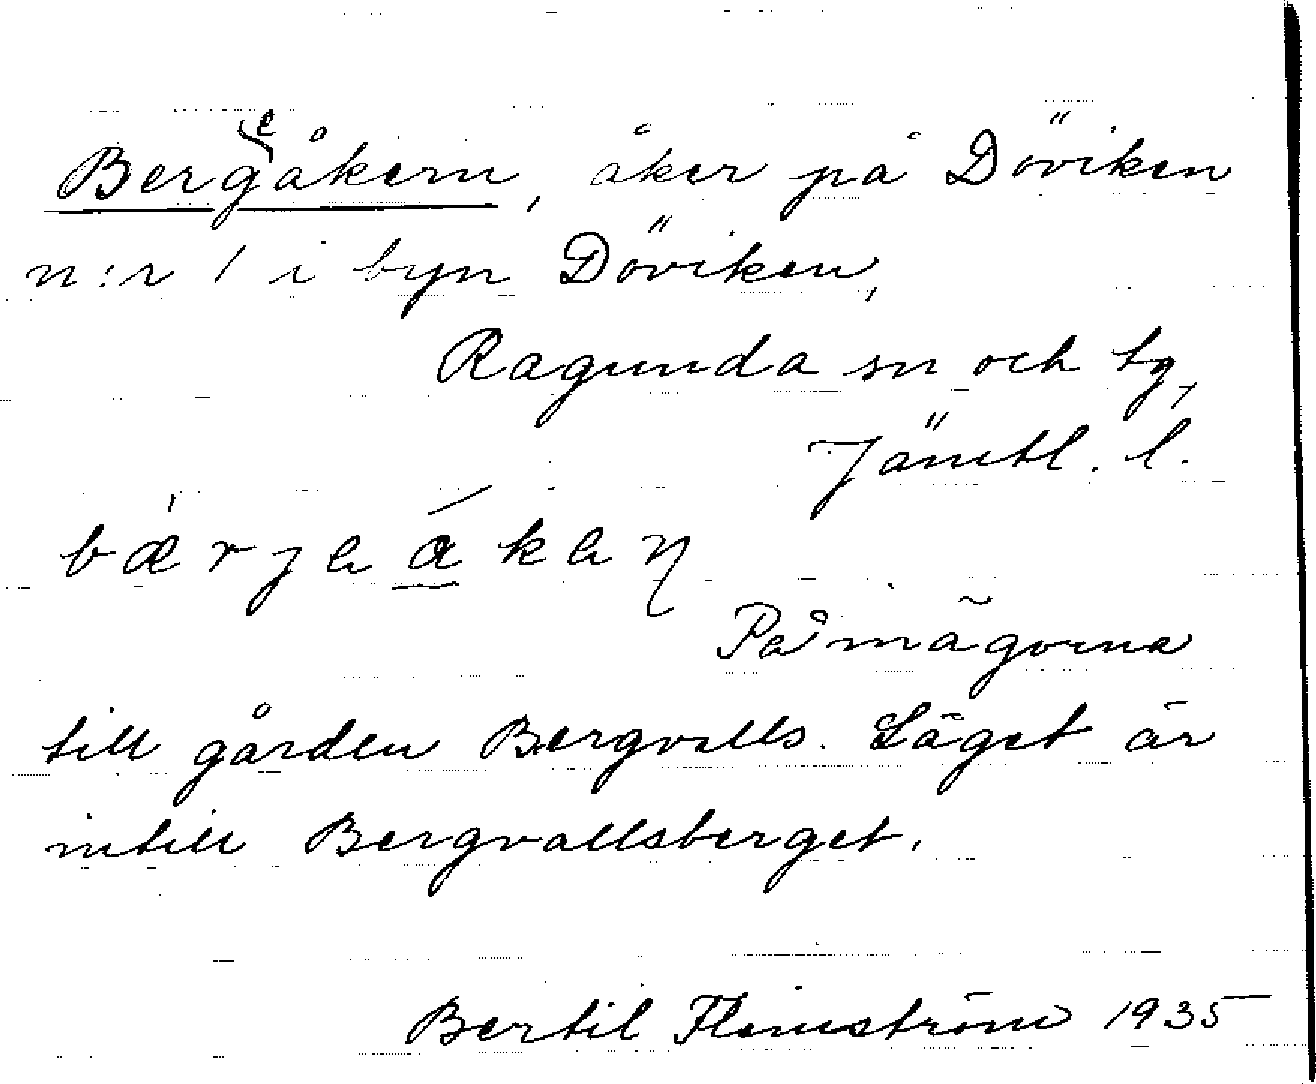 Bergeåkern, åker på Döviken
n:r 1 i byn Döviken,
Ragunda sn och tg,
Jämtl. l.
På mägorna
till gården Bergvills. Läget är
intill Bergvallsberget.
Bertil Flemström 1935